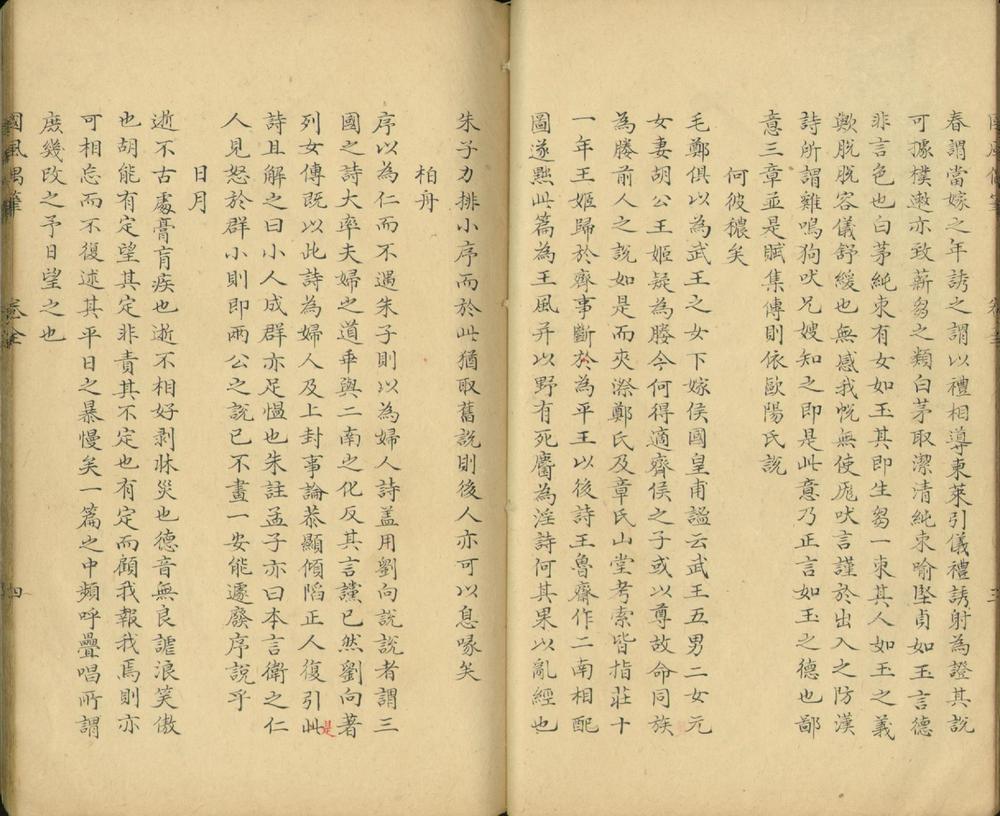 春謂當嫁之年誘之謂以禮相導東萊引儀禮誘射為證其説
可據樸遫亦致薪芻之類白茅取潔清純束喻堅貞如玉言德
非言色也白茅純束有女如玉其即生芻一束其人如玉之義
歟脱脱容儀舒緩也無感我帨無使尨吠言謹於出入之防漢
詩所謂雞鳴狗吠兄嫂知之即是此意乃正言如玉之德也鄙
意三章並是賦集傳則依歐陽氏説
何彼穠矣
毛鄭俱以為武王之女下嫁侯國皇甫謐云武王五男二女元
女妻胡公王姬疑為媵今何得適齊侯之子或以尊故命同族
為媵前人之説如是而夾漈鄭氏及章氏山堂考索皆指莊十
一年王姬歸於齊事斷於為平王以後詩王魯齋作二南相配
圖遂黜此篇為王風弁以野有死麕為淫詩何其果以亂經也
朱子力排小序而於此猶取舊説則後人亦可以息喙矣
柏舟
序以為仁而不遇朱子則以為婦人詩盖用劉向説説者謂三
國之詩大率夫婦之道乖與二南之化反其言讜已然劉向著
列女傳既以此詩為婦人及上封事論恭顯傾陷正人復引此
是
詩且解之曰小人成群亦足慍也朱註孟子亦曰本言衛之仁
人見怒於群小則即兩公之説已不畫一安能遽廢序説乎
日月
逝不古處膏肓疾也逝不相好剥牀災也德音無良謔浪笑傲
也胡能有定望其定非責其不定也有定而顧我報我焉則亦
可相忘而不復述其平日之暴慢矣一篇之中頻呼疊唱所謂
庶幾改之予日望之也
國風
四